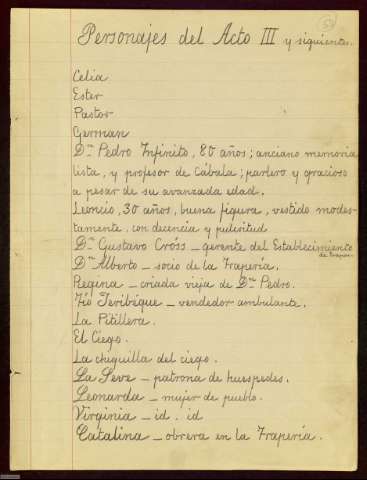 Personajes del Acto III y siguientes.
Celia
Ester
Pastor
German
Dn Pedro Infinito, 80 años; anciano memoria
lista, y profesor de Cábala; parlero y gracioso
a pesar de su avanzada edad.
Leoncio, 30 años, buena figura, vestido modes-
tamente, con decencia y pulcritud
Dn Gustavo Crois - gerente del Establecimiento
Dn Alberto - socio de la Trapería.
Regina - criada vieja de Dn Pedro.
Tío Jeribeque - vendedor ambulante.
La Pitillera.
El Ciego.
La chiquilla del ciego.
La Seve - patrona de huespedes.
Leonarda - mujer de pueblo.
Virginia - id. id
Catalina - obrera en la Trapería.